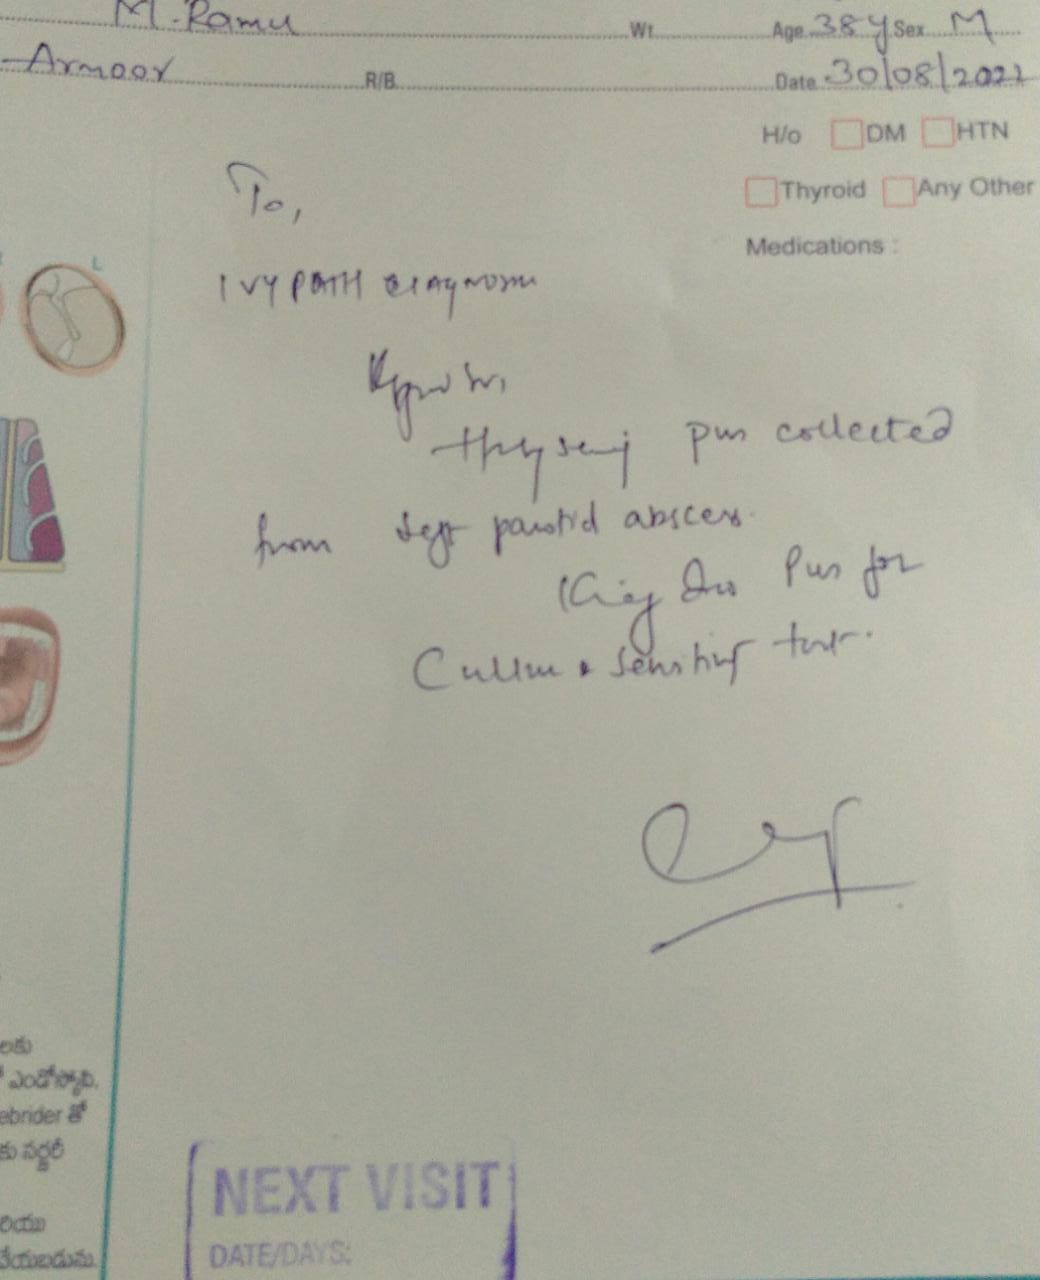 M. Ramu Wt. Age 38y Sex M
Armoor R/B Date 30/08/2022
H/o DM HTN
Thyroid Any Other
Medications :
L
To,
IVY PATH
pus collected
from left parotid abscess.
Pus for
Culture & Sensitivity test.
లకు
ఎండోస్కోపి,
ebrider తో
కు సర్జరీ
రియు
చేయబడును.
NEXT VISIT
DATE/DAYS: